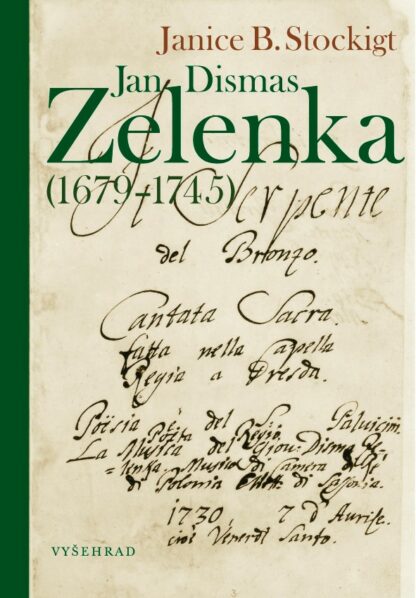 Janice B. Stockigt
Jan Dismas
Zelenka
(1679–1745)
Il Serpente
del Bronzo.
Cantata Sacra.
fatta nella Capella
Regia a Dresda.
Poësia è del S
Poëta Regio.
La Musica del Giou: Disma Ze-
=lenka Musico di Camera di
di Polonia Elett: di Saſsonia.
1730, 7 d'Aprile.
cioè Venerdi Santo.
VYŠEHRAD
3